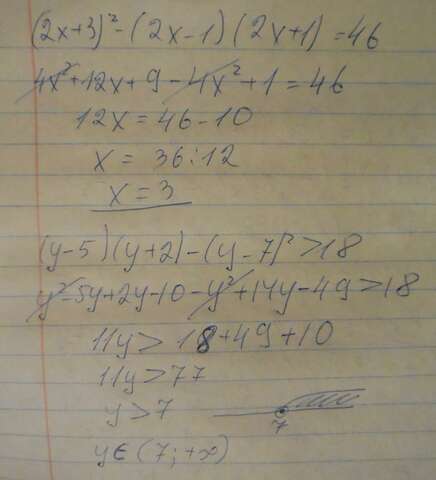 (2x+3)²-(2x-1)(2x+1)=46
4x²+12x+9-4x²+1=46
12x=46-10
x=36:12
x=3
(y-5)(y+2)-(y-7)²>18
y²-5y+2y-10-y²+14y-49>18
11y>18+49+10
11y>77
y>7
7
y∈(7;+∞)